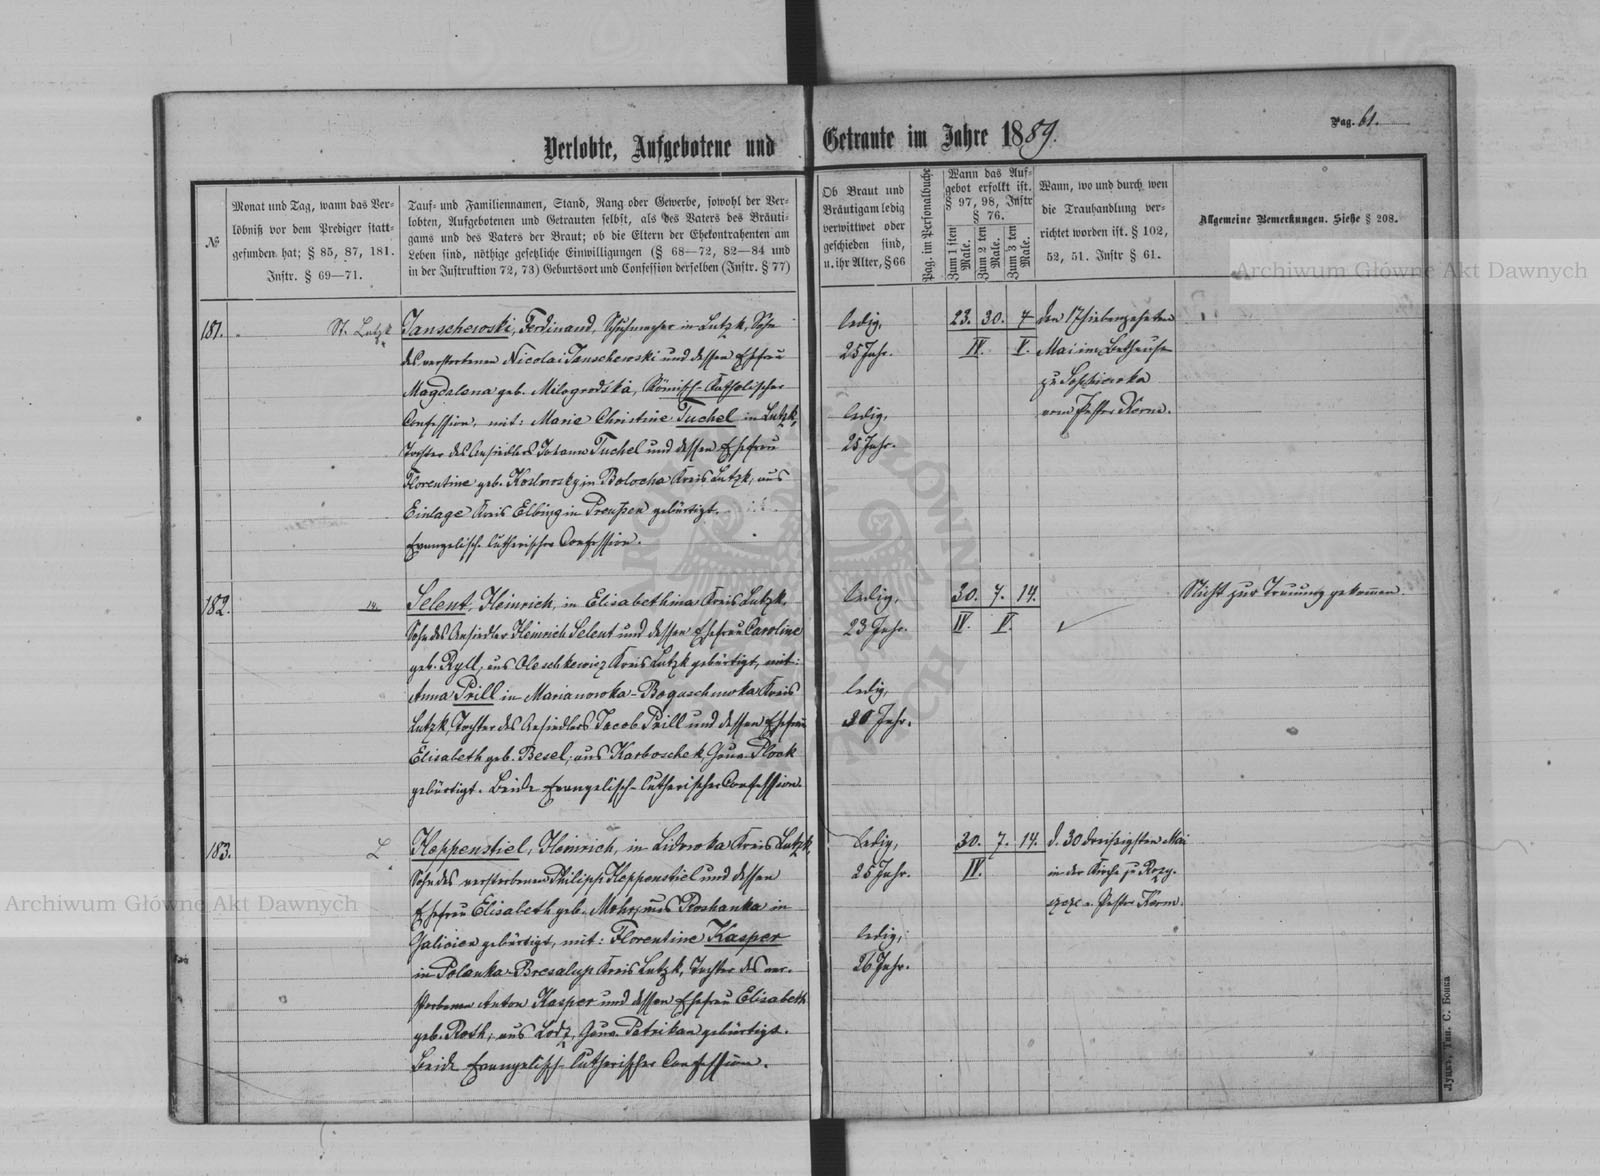 Pag. 61.
Verlobte, Aufgebotene und Getraute im Jahre 1889.
№
Monat und Tag, wann das Ver-
löbniß vor dem Prediger statt-
gefunden hat; § 85, 87, 181.
Instr. § 69—71.
Tauf- und Familiennamen, Stand, Rang oder Gewerbe, sowohl der Ver-
lobten, Aufgebotenen und Getrauten selbst, als des Vaters des Bräuti-
gams und des Vaters der Braut; ob die Eltern der Ehekontrahenten am
Leben sind, nöthige gesetzliche Einwilligungen (§ 68—72, 82—84 und
in der Instruktion 72, 73) Geburtsort und Confession derselben (Instr. § 77)
Ob Braut und
Bräutigam ledig
verwittwet oder
geschieden sind,
u. ihr Alter, § 66
Pag. im Personalbuche
Wann das Auf-
gebot erfolkt ist.
§ 97, 98, Instr
§ 76.
Zum 1 sten Male.
Zum 2 ten Male.
Zum 3 ten Male.
Wann, wo und durch wen
die Trauhandlung ver-
richtet worden ist. § 102,
52, 51. Instr § 61.
Allgemeine Bemerkungen. Siehe § 208.
181.
St. Lutzk
Janschewski, Ferdinand, Schuhmacher in Lutzk, Sohn
des verstorbenen Nicolai Janschewski und dessen Ehefrau
Magdalena geb. Milogrodska, Römisch-Katholischer
Confession, mit: Marie Christine Tuchel in Lutzk,
Tochter des Ansiedlers Johann Tuchel und dessen Ehefrau
Florentine geb. Koslowsky in Bolocha Kreis Lutzk, aus
Einlage Kreis Elbing in Preußen gebürtigt.
Evangelisch-lutherischer Confession.
ledig,
25 Jahr.
ledig,
25 Jahr.
23. 30. 7
IV. V.
den 17 siebenzehnten
Mai im Bethause
zu Sophiewka
vom Pastor Kerm.
182.
Selent, Heinrich, in Elisabethina Kreis Lutzk,
Sohn des Ansiedler Heinrich Selent und dessen Ehefrau Caroline
geb. Ryll, aus Oleschkewicz Kreis Lutzk gebürtigt, mit:
Anna Prill in Marianowka-Boguschuwka Kreis
Lutzk, Tochter des Ansiedlers Jacob Prill und dessen Ehefrau
Elisabeth geb. Besel, aus Karboschek, Gouv. Plock
gebürtigt. Beide Evangelisch-lutherischer Confession.
ledig,
23 Jahr.
ledig,
Jahr.
30. 7. 14.
IV. V.
Nicht zur Trauung gekommen.
183.
L
Keppenstiel, Heinrich, in Lidowka Kreis Lutzk,
Sohn des verstorbenen Philipp Keppenstiel und dessen
Ehefrau Elisabeth geb. Mohr, aus Roshanka in
Galicien gebürtigt, mit: Florentine Kasper
in Polanka-Bresalup Kreis Lutzk, Tochter des ver-
storbenen Anton Kasper und dessen Ehefrau Elisabeth
geb. Roth, aus Lodz, Gouv. Petrikau gebürtigt.
Beide Evangelisch-lutherischer Confession.
ledig,
25 Jahr.
ledig,
26 Jahr.
30. 7. 14.
IV.
d. 30 dreißigsten Mai
in der Kirche zu Rozy-
v. Pastor Kerm.
Луцкъ, Тип. С. Бонка
Archiwum Główne Akt Dawnych
Archiwum Główne Akt Dawnych